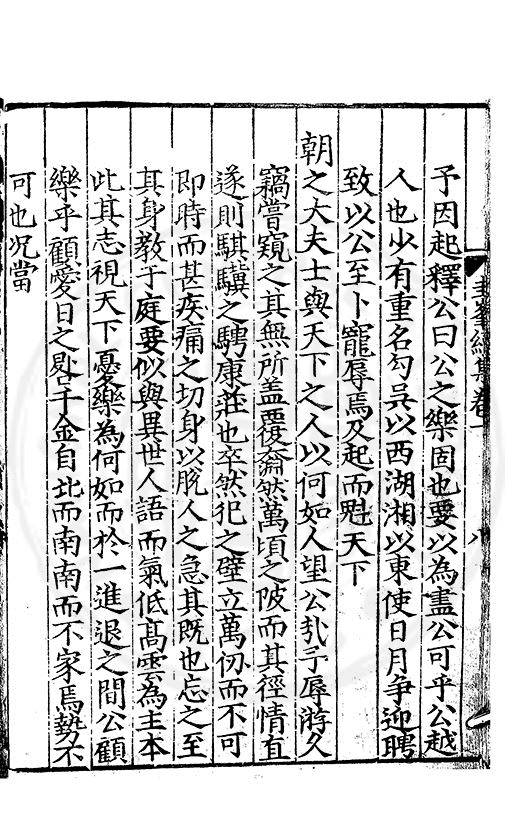 予因起釋公曰公之樂固也要以為盡公可乎公越
人也少有重名勾吳以西湖湘以東使日月爭迎聘
致以公至卜寵辱焉及起而魁天下
朝之大夫士與天下之人以何如人望公乱予辱游久
竊嘗窺之其無所盖覆奫然萬頃之陂而其徑情直
遂則騏驥之騁康莊也卒然犯之壁立萬仞而不可
即時而甚疾痛之切身以脫人之急其既也忘之至
其身教于庭要似與異世人語而氣低髙雲為主本
此其志視天下憂樂為何如而於一進退之間公顧
樂乎顧愛日之晷千金自北而南南而不家焉勢不
可也况當
集卷一
八